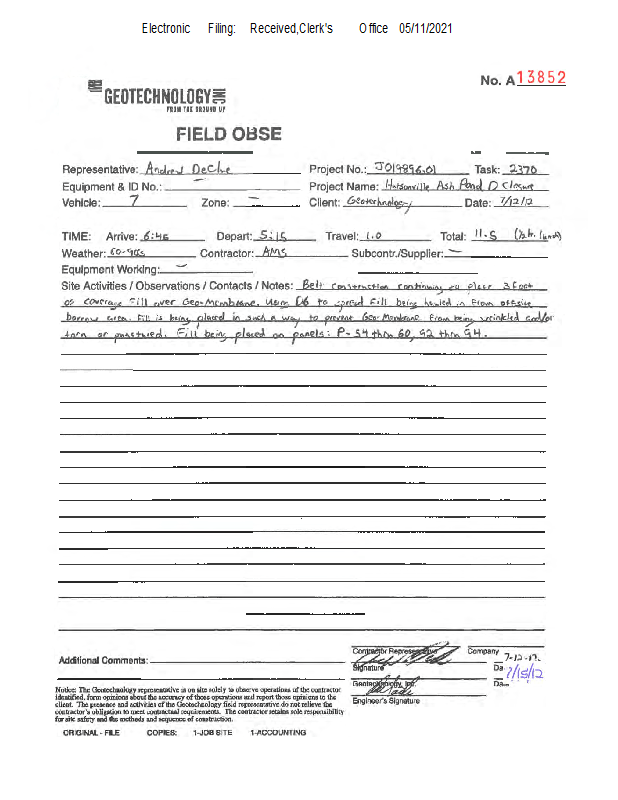 Electronic Filing: Received,Clerk's Office 05/11/2021
No. A13852
GEOTECHNOLOGY INC
FROM THE GROUND UP
FIELD OBSE
Representative: Andrew DeClue Project No.: J019896.01 Task: 2370
Equipment & ID No.: — Project Name: Hutsonville Ash Pond D Closure
Vehicle: 7 Zone: — Client: Geotechnology Date: 7/12/12
TIME: Arrive: 6:45 Depart: 5:15 Travel: 1.0 Total: 11.5 (½ hr. lunch)
Weather: 80-90s Contractor: AMS Subcontr./Supplier: —
Equipment Working: —
Site Activities / Observations / Contacts / Notes: Belt Construction continuing to place 3 foot
of coverage Fill over Geo-Membrane. Using D6 to spread Fill being hauled in From offsite
borrow area. Fill is being placed in such a way to prevent Geo-Membrane From being wrinkled and/or
torn or punctured. Fill being placed on panels: P-54 thru 60, 92 thru 94.
Additional Comments:
Contractor Representative Company
7-12-12
Signature Da
7/15/12
Geotechnology, Inc. Da
Engineer's Signature
Notice: The Geotechnology representative is on site solely to observe operations of the contractor
identified, form opinions about the accuracy of those operations and report those opinions to the
client. The presence and activities of the Geotechnology field representative do not relieve the
contractor's obligation to meet contractual requirements. The contractor retains sole responsibility
for site safety and the methods and sequence of construction.
ORIGINAL - FILE COPIES: 1-JOB SITE 1-ACCOUNTING